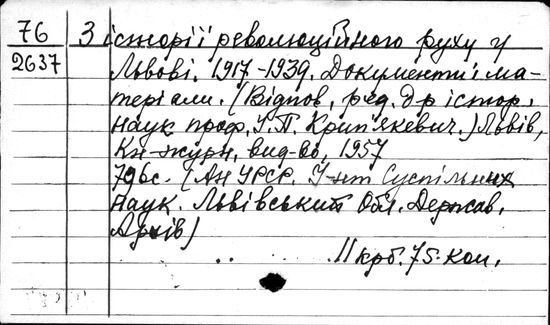 76 З історії революційного руху у
2637 Львові. 1917-1939. Документи і ма-
теріали. (Відпов. ред. д-р істор.
наук проф. І.П. Крип'якевич.) Львів,
Кн-журн. вид-во, 1957
796с. (АН УРСР. І-нт Суспільних
наук. Львівський Обл. Держав.
Архів)
11 крб. 75 коп.